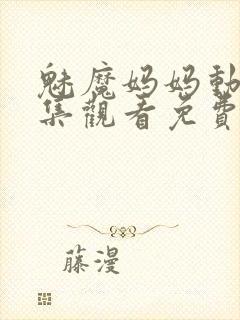 魅魔妈妈動
集觀看免費
藤漫